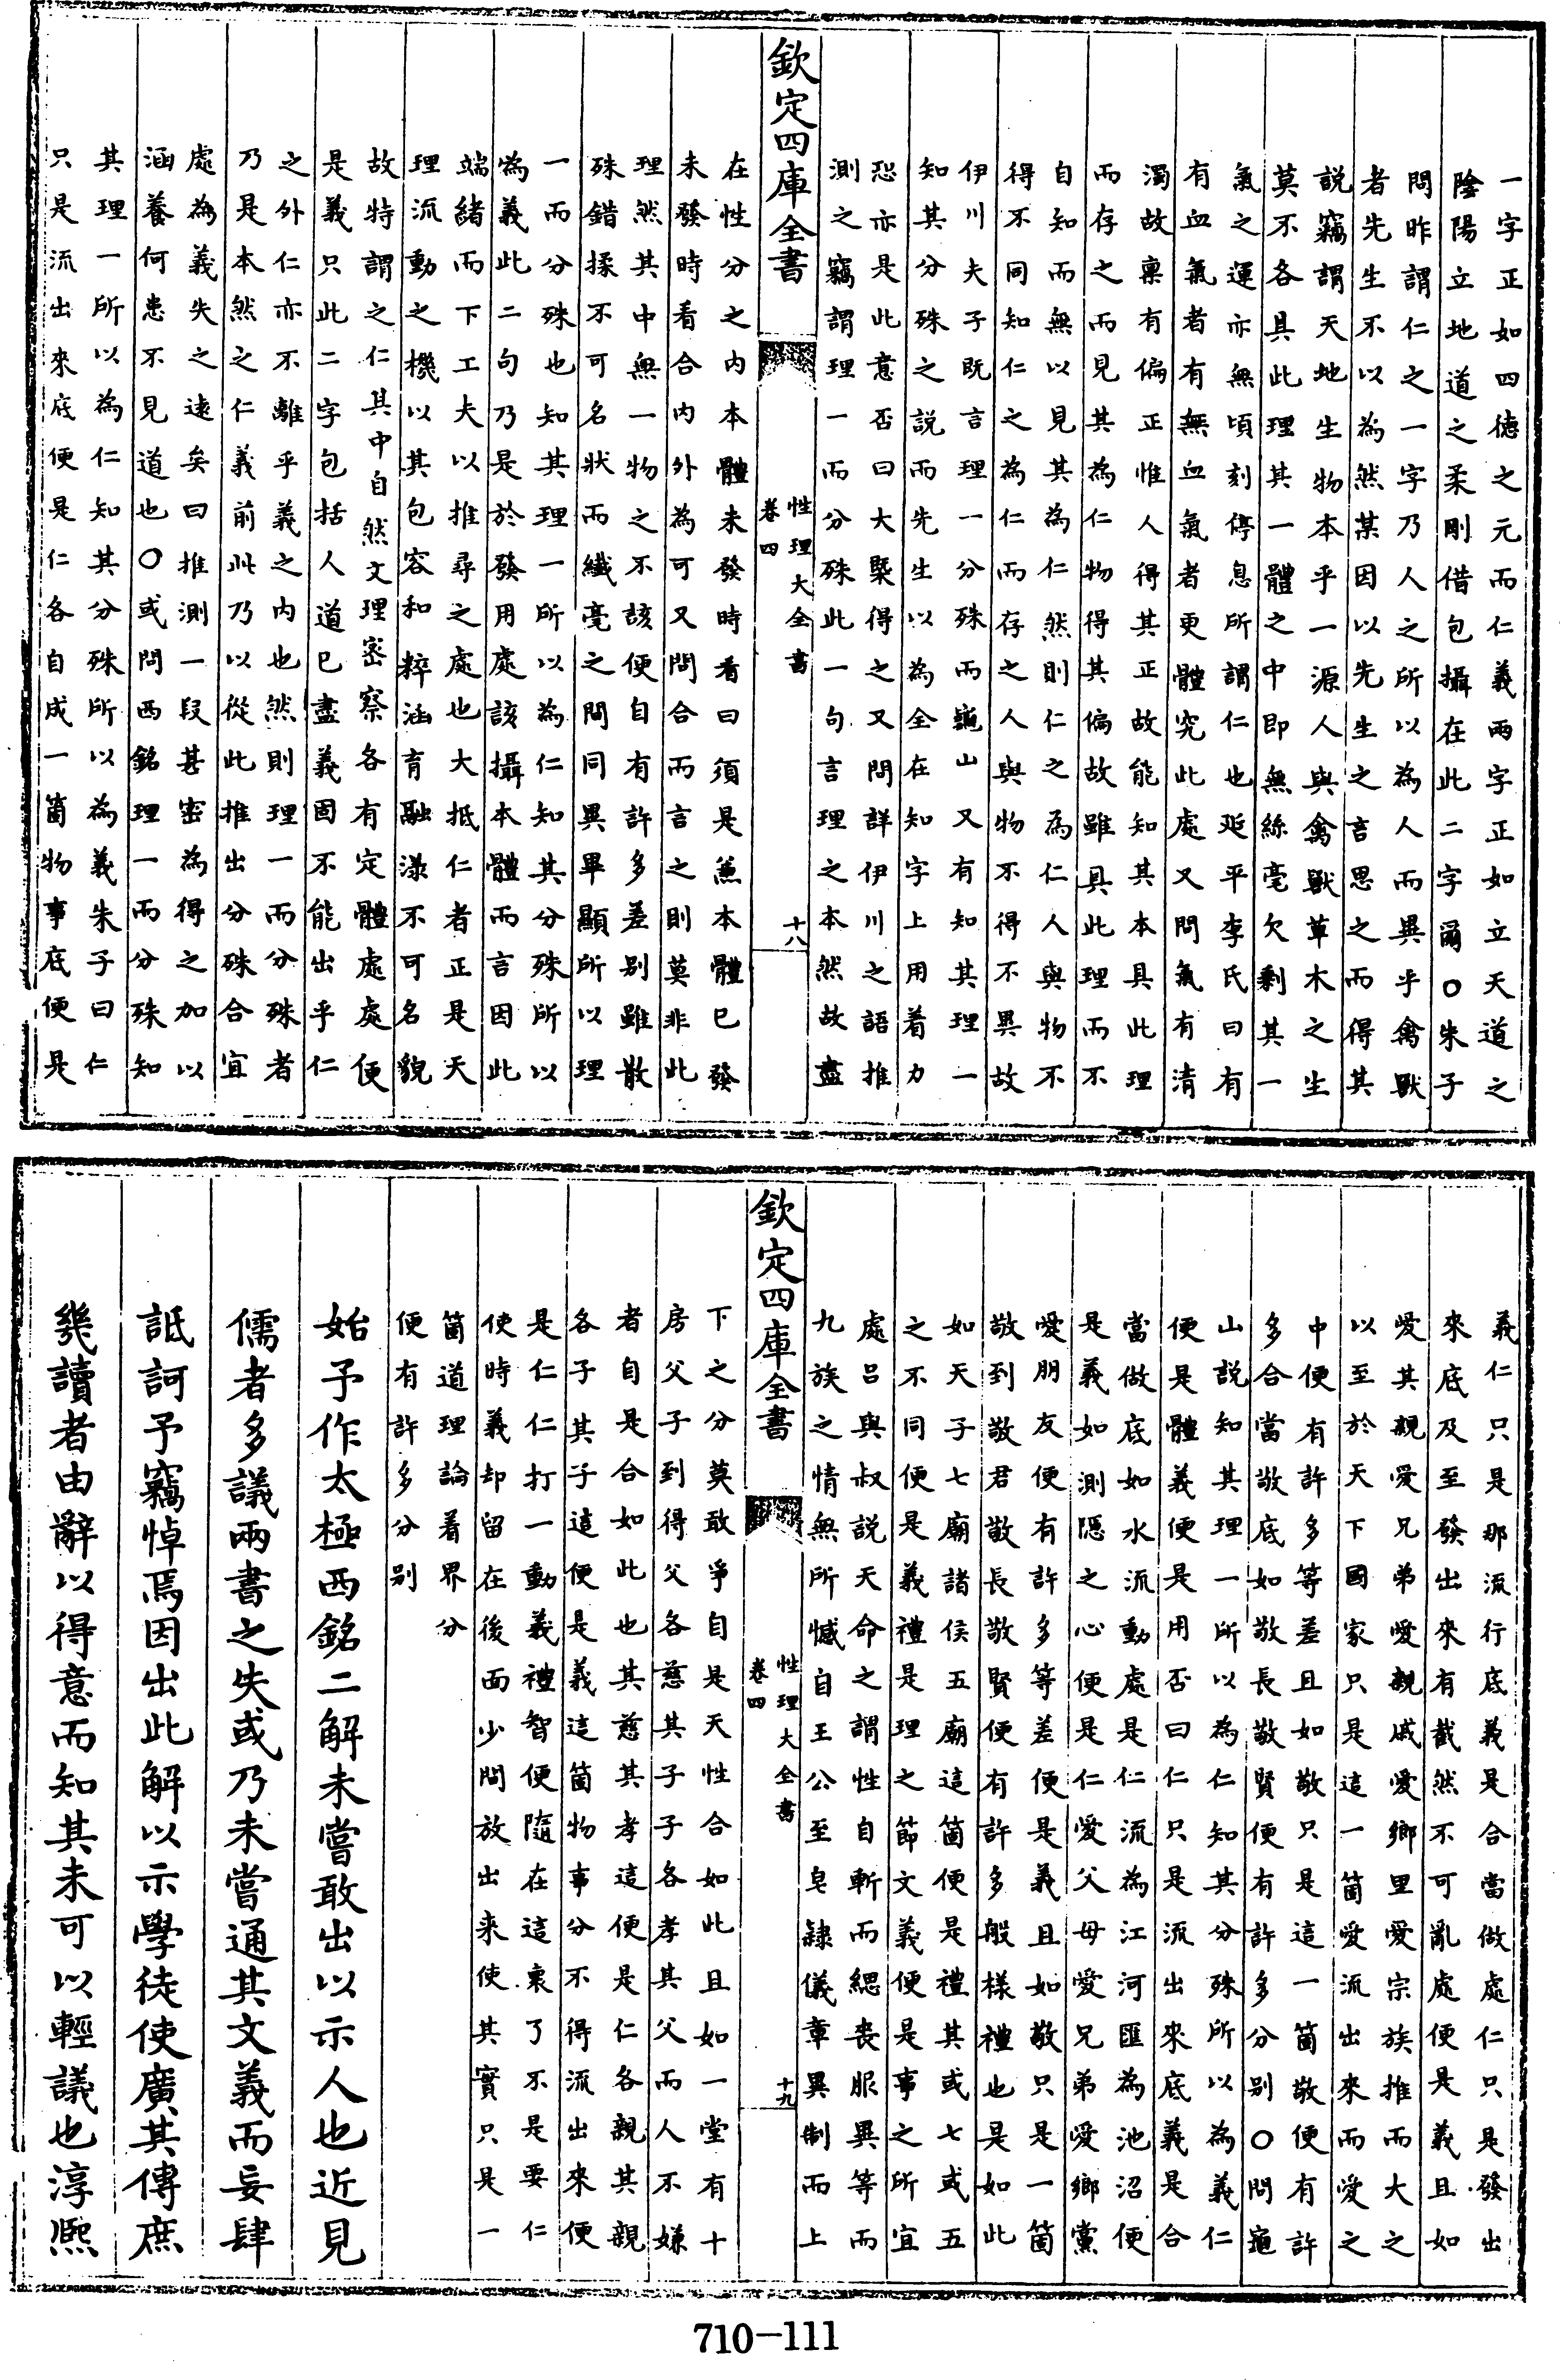 一字正如四徳之元而仁義兩字正如立天道之
陰陽立地道之柔剛借包攝在此二字爾○朱子
問昨謂仁之一字乃人之所以為人而異乎禽獸
者先生不以為然某因以先生之言思之而得其
說竊謂天地生物本乎一源人與禽獸草木之生
莫不各具此理其一體之中即無絲毫欠剩其一
氣之運亦無頃刻停息所謂仁也延平李氏曰有
有血氣者有無血氣者更體究此處又問氣有清
濁故稟有偏正惟人得其正故能知其本具此理
而存之而見其為仁物得其偏故雖具此理而不
自知而無以見其為仁然則仁之為仁人與物不
得不同知仁之為仁而存之人與物不得不異故
伊川夫子既言理一分殊而龜山又有知其理一
知其分殊之說而先生以為全在知字上用着力
恐亦是此意否曰大槩得之又問詳伊川之語推
測之竊謂理一而分殊此一句言理之本然故盡
欽定四庫全書
性理大全書
卷四
十八
在性分之内本體未發時看曰須是兼本體已發
未發時看合内外為可又問合而言之則莫非此
理然其中無一物之不該便自有許多差别雖散
殊錯揉不可名狀而纎毫之間同異畢顯所以理
一而分殊也知其理一所以為仁知其分殊所以
為義此二句乃是於發用處該攝本體而言因此
端緒而下工夫以推尋之處也大抵仁者正是天
理流動之機以其包容和粹涵育融漾不可名貌
故特謂之仁其中自然文理密察各有定體處處便
是義只此二字包括人道已盡義固不能出乎仁
之外仁亦不離乎義之内也然則理一而分殊者
乃是本然之仁義前此乃以從此推出分殊合宜
處為義失之遠矣曰推測一段甚密為得之加以
涵養何患不見道也○或問西銘理一而分殊知
其理一所以為仁知其分殊所以為義朱子曰仁
只是流出來底便是仁各自成一箇物事底便是
義仁只是那流行底義是合當做處仁只是發出
來底及至發出來有截然不可亂處便是義且如
愛其親愛兄弟愛親戚愛鄉里愛宗族推而大之
以至於天下國家只是這一箇愛流出來而愛之
中便有許多等差且如敬只是這一箇敬便有許
多合當敬底如敬長敬賢便有許多分别○問龜
山說知其理一所以為仁知其分殊所以為義仁
便是體義便是用否曰仁只是流出來底義是合
當做底如水流動處是仁流為江河匯為池沼便
是義如惻隱之心便是仁愛父母愛兄弟愛鄉黨
愛朋友便有許多等差便是義且如敬只是一箇
敬到敬君敬長敬賢便有許多般樣禮也是如此
如天子七廟諸侯五廟這箇便是禮其或七或五
之不同便是義禮是理之節文義便是事之所宜
處吕與叔說天命之謂性自斬而緦喪服異等而
九族之情無所憾自王公至皂隸儀章異制而上
欽定四庫全書
性理大全書
卷四
十九
下之分莫敢爭自是天性合如此且如一堂有十
房父子到得父各慈其子子各孝其父而人不嫌
者自是合如此也其慈其孝這便是仁各親其親
各子其子這便是義這箇物事分不得流出來便
是仁仁打一動義禮智便隨在這裏了不是要仁
使時義却留在後面少間放出來使其實只是一
箇道理論着界分
便有許多分别
始予作太極西銘二解未嘗敢出以示人也近見
儒者多議兩書之失或乃未嘗通其文義而妄肆
詆訶予竊悼焉因出此解以示學徒使廣其傳庶
幾讀者由辭以得意而知其未可以輕議也淳熙
710-111